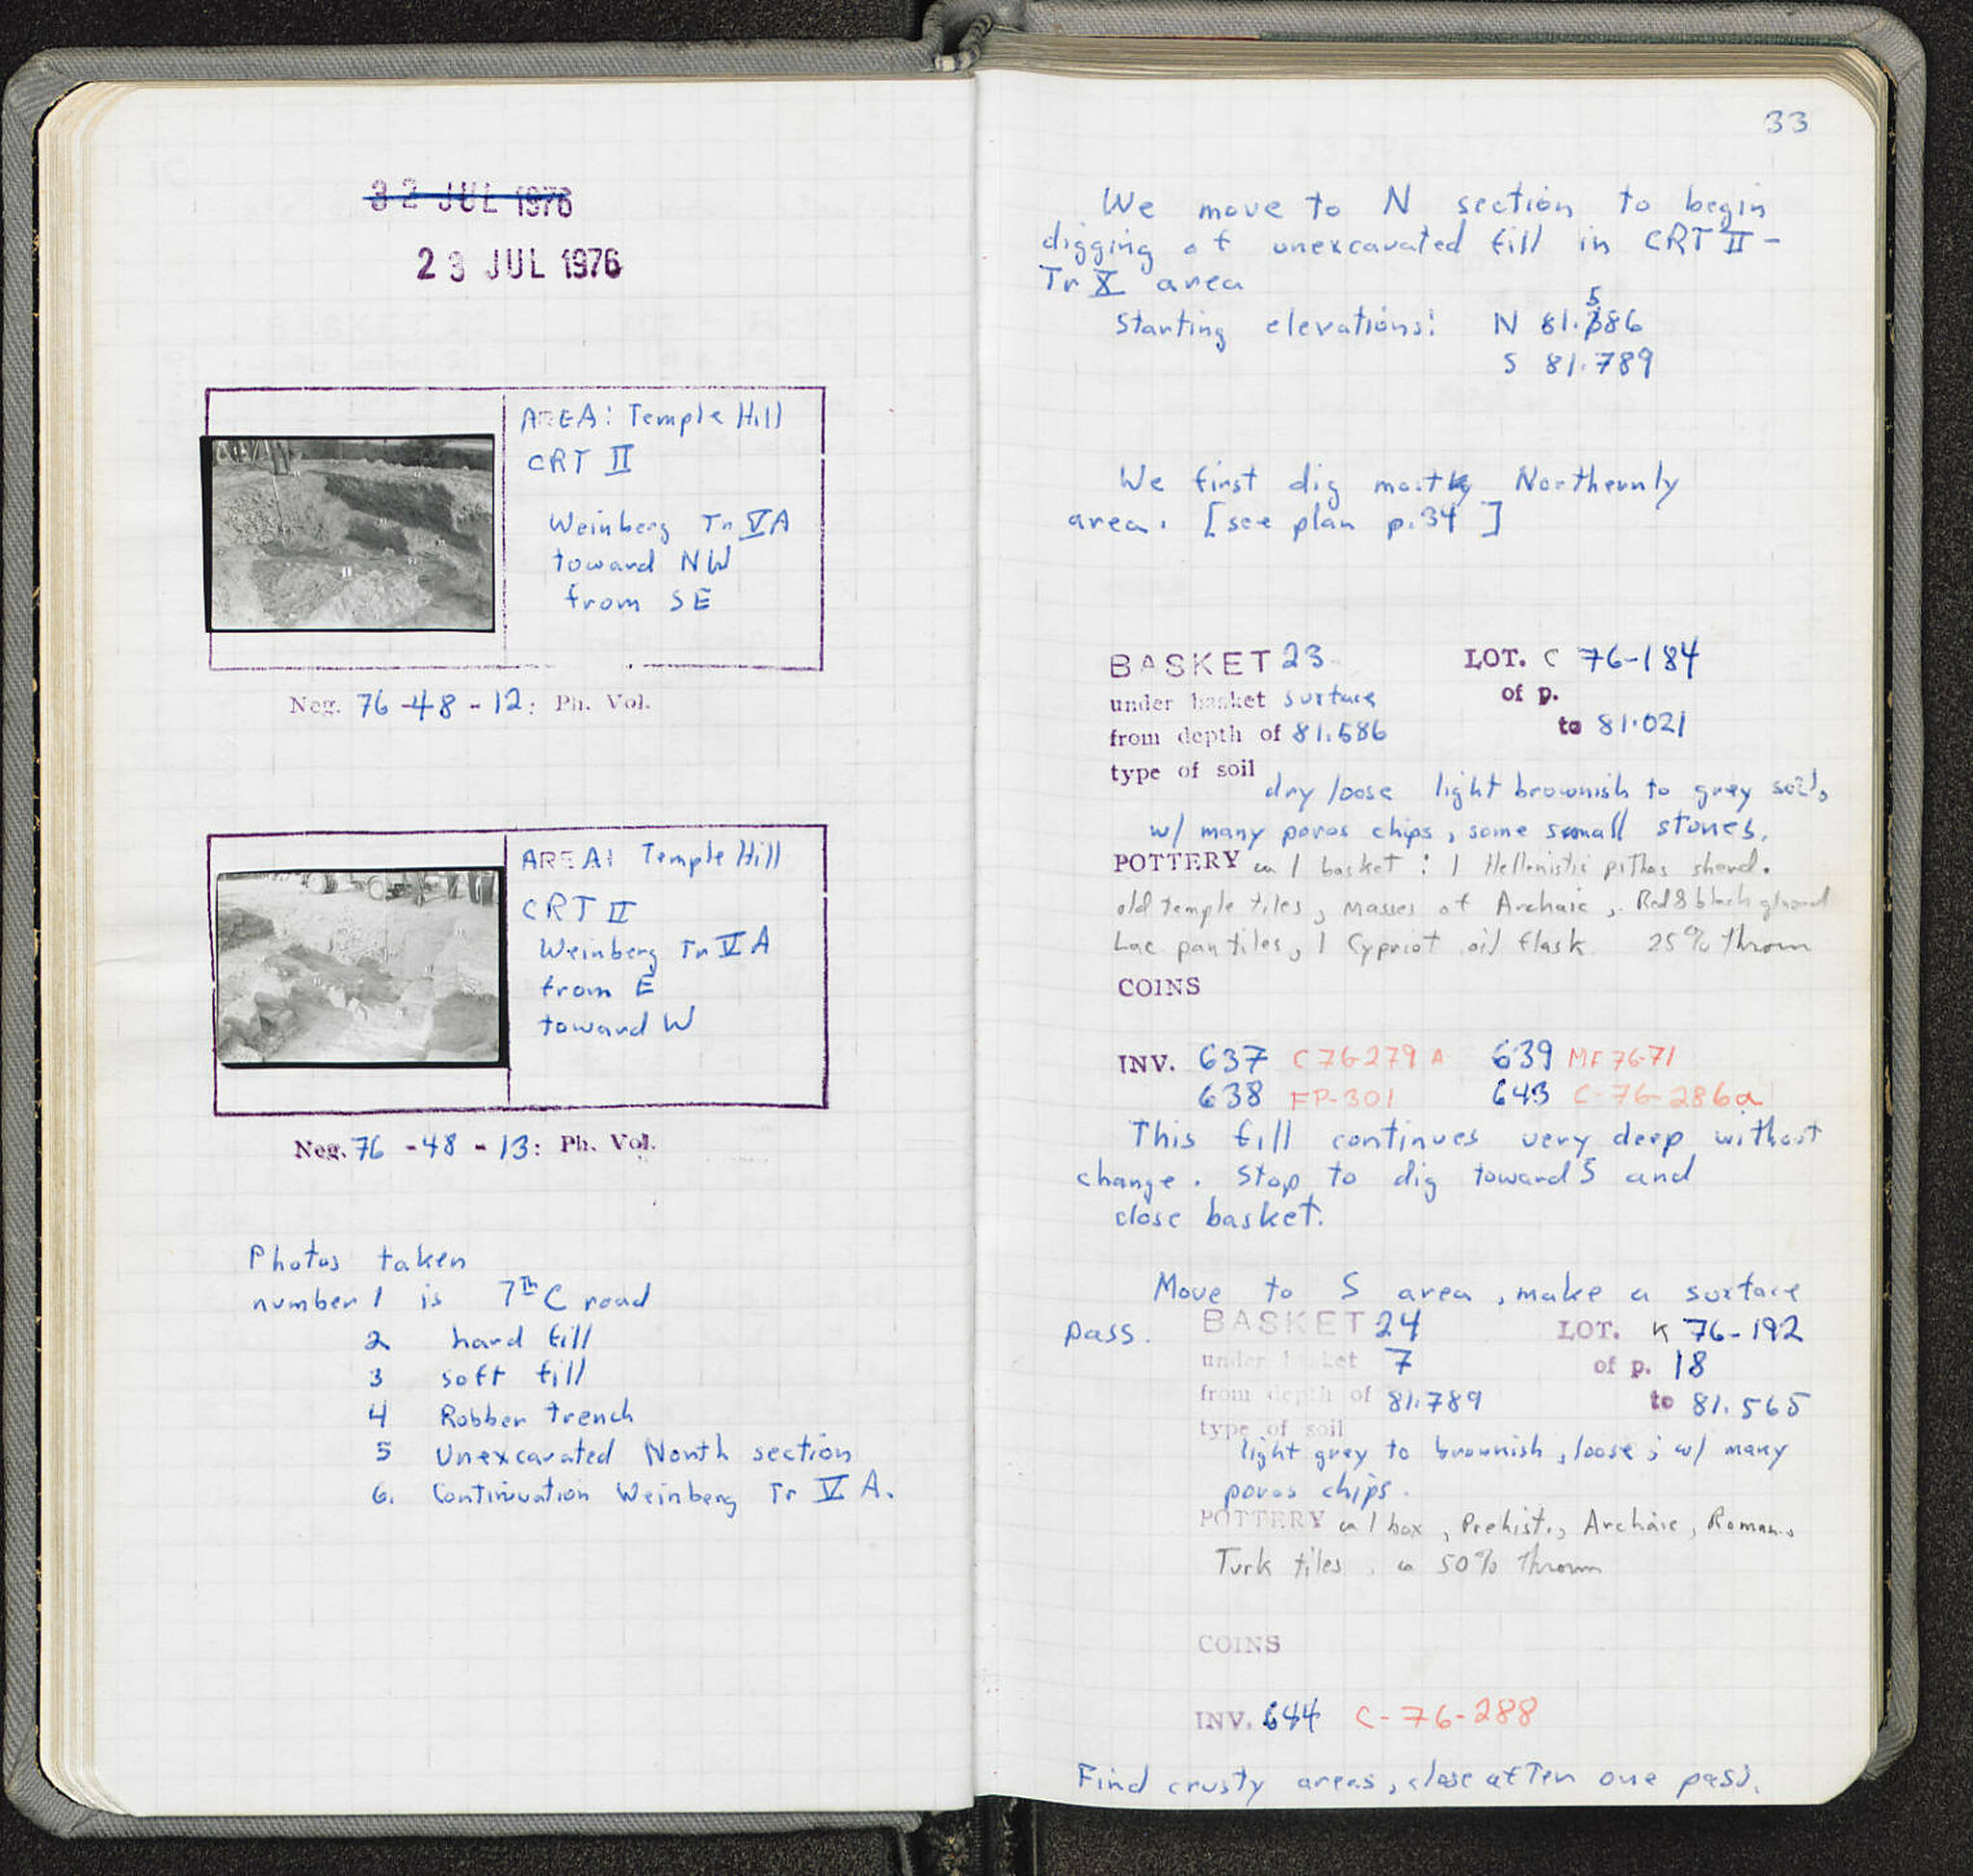 32 JUL 1976
23 JUL 1976
AREA: Temple Hill
CRT II
Weinberg Tr VA
toward NW
from SE
Neg. 76-48-12: Ph. Vol.
AREA: Temple Hill
CRT II
Weinberg Tr VA
from E
toward W
Neg. 76-48-13: Ph. Vol.
Photos taken
number 1 is 7th C road
2 hard fill
3 soft fill
4 Robber trench
5 Unexcavated North section
6. Continuation Weinberg Tr V A.
33
We move to N section to begin
digging of unexcavated fill in CRT II -
Tr X area
Starting elevations: N 81.586
S 81.789
We first dig mostly Northernly
area. [see plan p.34]
BASKET 23 LOT. C 76-184
under basket surface of p.
from depth of 81.586 to 81.021
type of soil
dry loose light brownish to grey soil,
w/ many poros chips, some small stones.
POTTERY in 1 basket: 1 Hellenistic pithos sherd.
old temple tiles, masses of Archaic, Red & black glazed
Lac pan tiles, 1 Cypriot oil flask 25% thrown
COINS
INV. 637 C 76-279 A 639 MF 76-71
638 FP-301 643 C-76-286a
This fill continues very deep without
change. Stop to dig toward S and
close basket.
Move to S area, make a surface
pass. BASKET 24 LOT. K 76-192
under basket 7 of p. 18
from depth of 81.789 to 81.565
type of soil
light grey to brownish, loose; w/ many
poros chips.
POTTERY in 1 box, Prehist., Archaic, Roman,
Turk tiles 50% thrown
COINS
INV. 644 C-76-288
Find crusty areas, close after one pass.